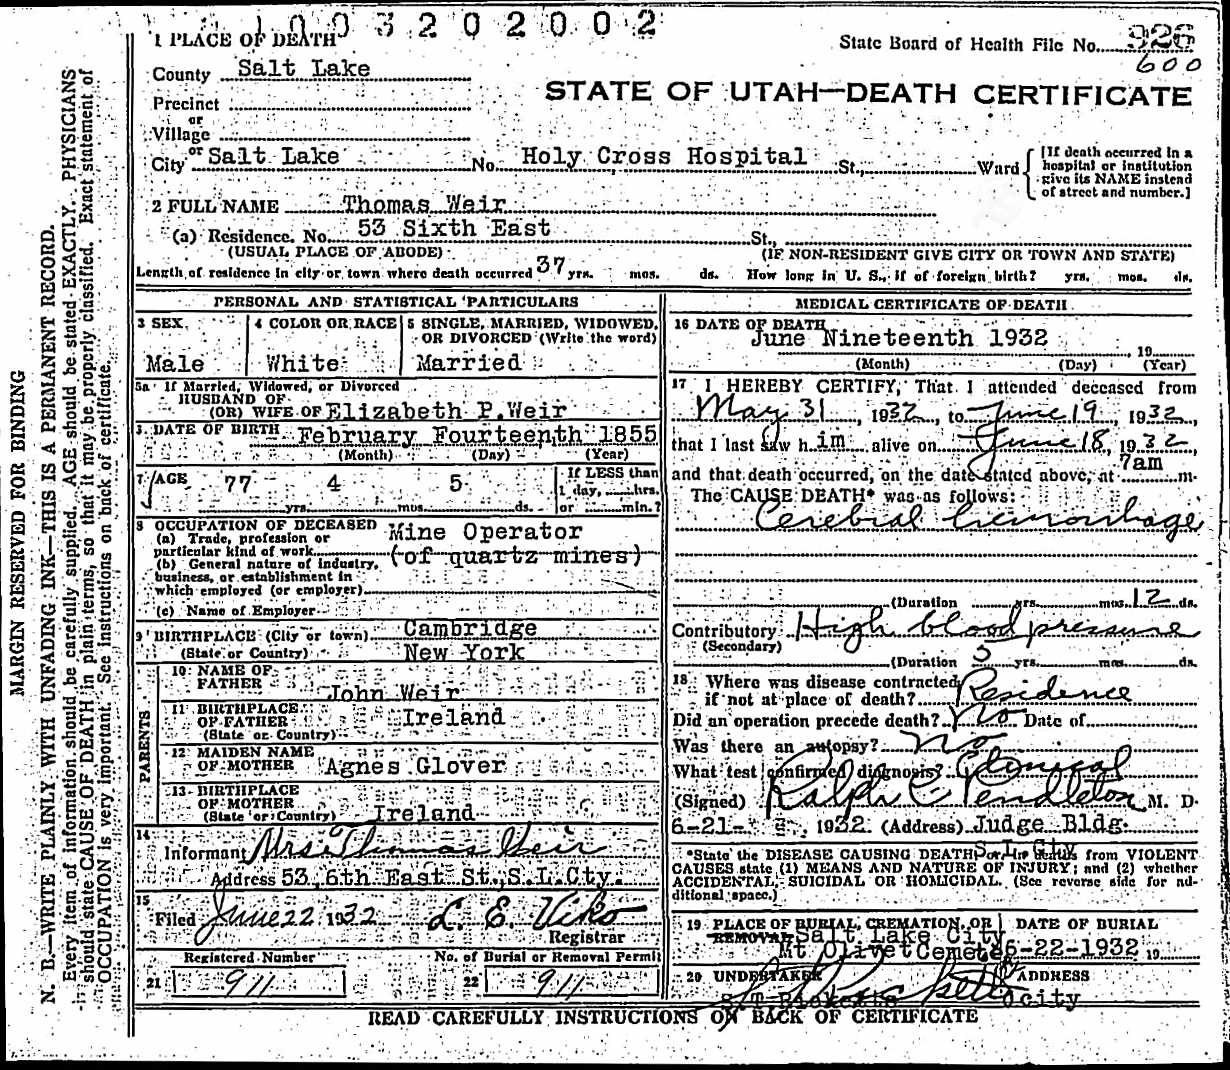 1003202002
1 PLACE OF DEATH
State Board of Health File No. 926
600
County Salt Lake
STATE OF UTAH—DEATH CERTIFICATE
Precinct
or
Village
or
City Salt Lake No. Holy Cross Hospital St., Ward
[If death occurred in a
hospital or institution
give its NAME instead
of street and number.]
2 FULL NAME Thomas Weir
(a) Residence. No. 53 Sixth East St.,
(USUAL PLACE OF ABODE) (IF NON-RESIDENT GIVE CITY OR TOWN AND STATE)
Length of residence in city or town where death occurred 37 yrs. mos. ds. How long in U. S., if of foreign birth? yrs. mos. ds.
PERSONAL AND STATISTICAL PARTICULARS
3 SEX 4 COLOR OR RACE 5 SINGLE, MARRIED, WIDOWED,
OR DIVORCED (Write the word)
Male White Married
5a If Married, Widowed, or Divorced
HUSBAND OF
(OR) WIFE OF Elizabeth P. Weir
DATE OF BIRTH February Fourteenth 1855
(Month) (Day) (Year)
7 AGE 77 yrs. 4 mos. 5 ds.
If LESS than
1 day, hrs.
or min.?
8 OCCUPATION OF DECEASED
(a) Trade, profession or
particular kind of work Mine Operator
(of quartz mines)
(b) General nature of industry,
business, or establishment in
which employed (or employer)
(c) Name of Employer
9 BIRTHPLACE (City or town) Cambridge
(State or Country) New York
PARENTS
10 NAME OF
FATHER John Weir
11 BIRTHPLACE
OF FATHER Ireland
(State or Country)
12 MAIDEN NAME
OF MOTHER Agnes Glover
13 BIRTHPLACE
OF MOTHER
(State or Country) Ireland
14
Informant Mrs Thomas Weir
Address 53, 6th East St., S.L.Cty.
15
Filed June 22 1932 L. E. Viko
Registrar
Registered Number No. of Burial or Removal Permit
21 911 22 911
MEDICAL CERTIFICATE OF DEATH
16 DATE OF DEATH
June Nineteenth 1932, 19
(Month) (Day) (Year)
17 I HEREBY CERTIFY, That I attended deceased from
May 31, 1932, to June 19, 1932,
that I last saw him alive on June 18, 1932,
and that death occurred, on the date stated above, at 7am m.
The CAUSE DEATH* was as follows:
Cerebral hemorrhage
(Duration yrs. mos. 12 ds.
Contributory High blood pressure
(Secondary)
(Duration 5 yrs. mos. ds.
18 Where was disease contracted
if not at place of death? Residence
Did an operation precede death? No Date of
Was there an autopsy? No
What test confirmed diagnosis? Clinical
(Signed) Ralph C Pendleton M. D.
6-21-, 1932 (Address) Judge Bldg.
S.L.Cty
*State the DISEASE CAUSING DEATH, or in deaths from VIOLENT
CAUSES state (1) MEANS AND NATURE OF INJURY; and (2) whether
ACCIDENTAL, SUICIDAL OR HOMICIDAL. (See reverse side for ad-
ditional space.)
19 PLACE OF BURIAL, CREMATION, OR DATE OF BURIAL
REMOVAL Salt Lake City
Mt Olivet Cemete 6-22-1932 19
20 UNDERTAKER ADDRESS
city
READ CAREFULLY INSTRUCTIONS ON BACK OF CERTIFICATE
MARGIN RESERVED FOR BINDING
N. B.—WRITE PLAINLY WITH UNFADING INK—THIS IS A PERMANENT RECORD.
Every item of information should be carefully supplied. AGE should be stated EXACTLY. PHYSICIANS
should state CAUSE OF DEATH in plain terms, so that it may be properly classified. Exact statement of
OCCUPATION is very important. See instructions on back of certificate.